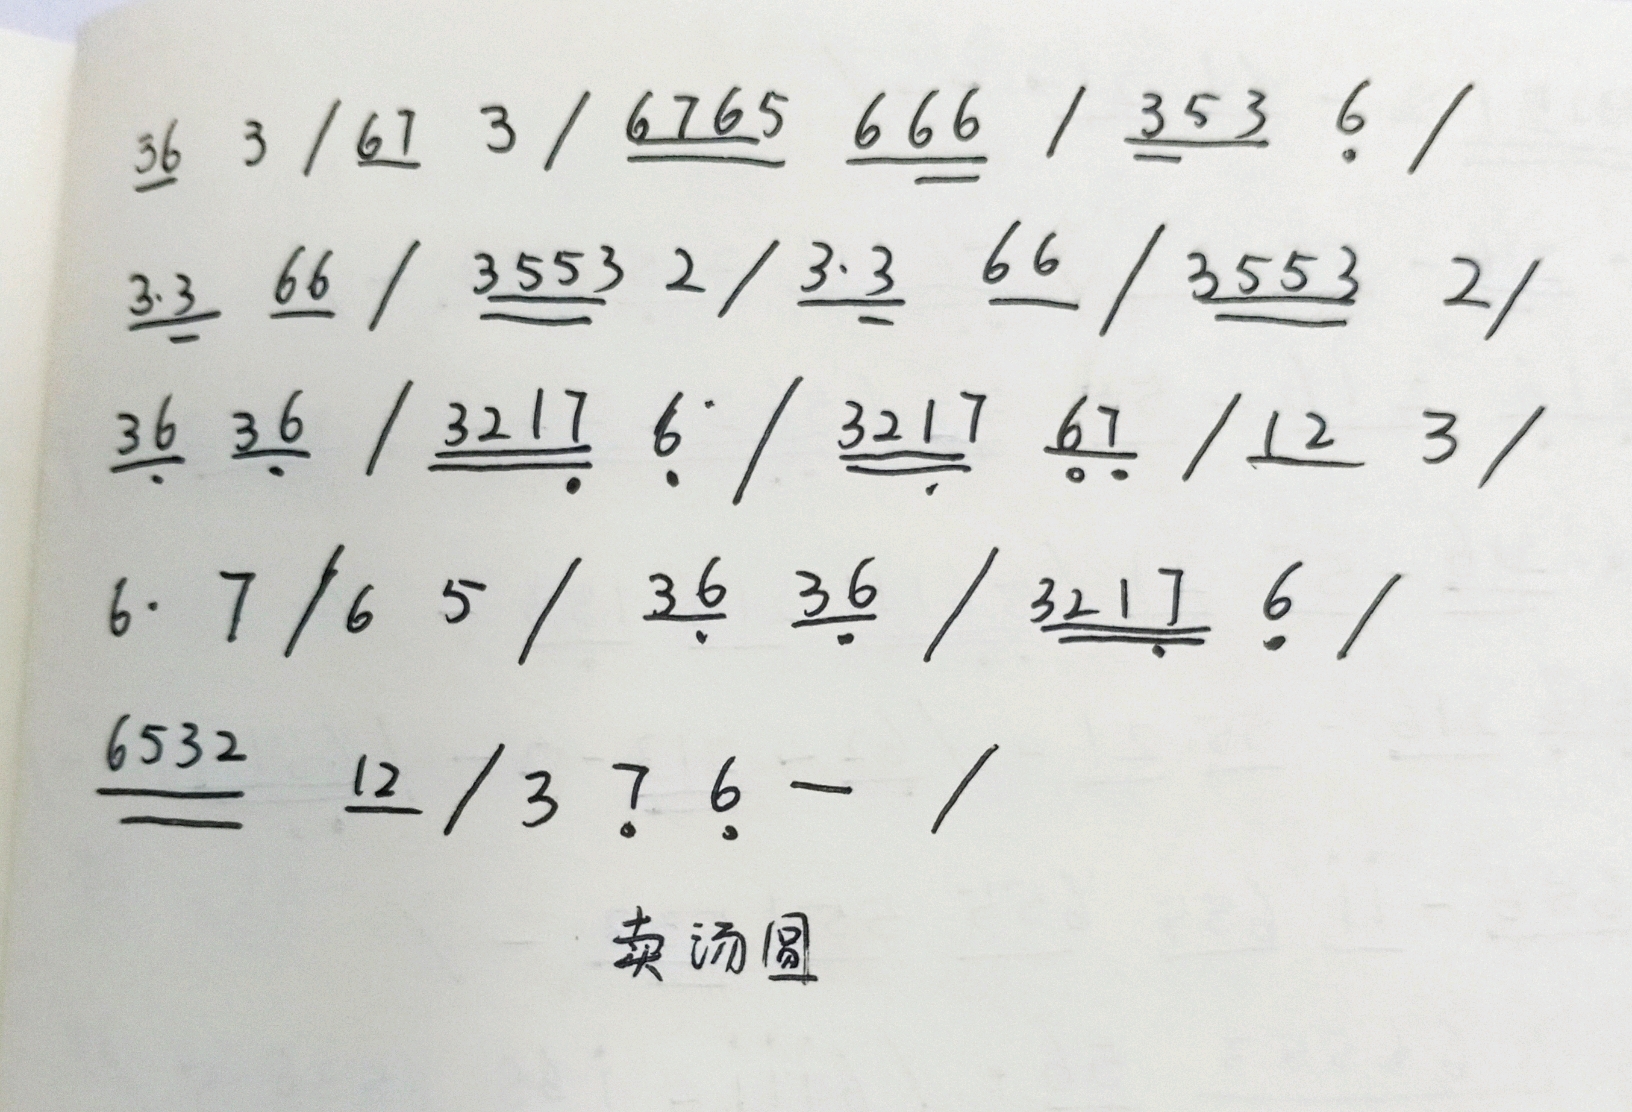 36 3 / 67 3 / 6765 666 / 353 6 /
3·3 66 / 3553 2 / 3·3 66 / 3553 2 /
36 36 / 3217 6· / 3217 67 / 12 3 /
6· 7 / 6 5 / 36 36 / 3217 6 /
6532 12 / 3 7 6 — /
卖汤圆